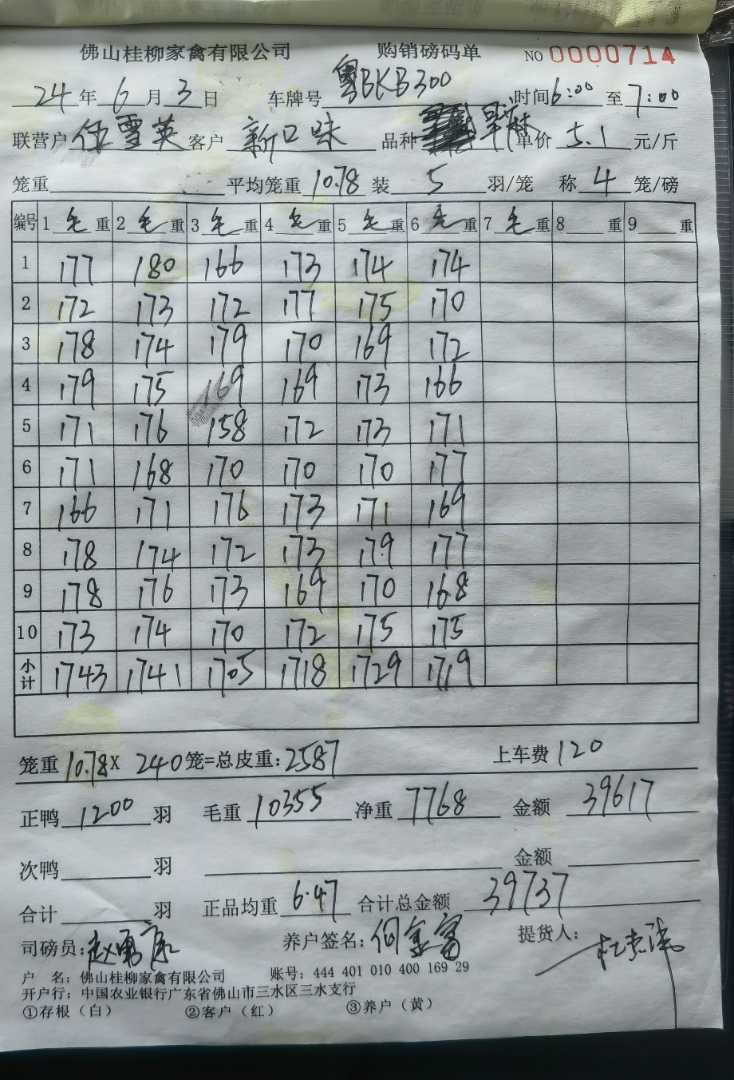 佛山桂柳家禽有限公司 购销磅码单 NO 0000714
24年6月3日 车牌号 粤BKB300 时间6:00至7:00
联营户 伍雪英 客户 新口味 品种 单价 5.1 元/斤
笼重 平均笼重 10.78 装 5 羽/笼 称 4 笼/磅
编号 1 毛 重 2 毛 重 3 毛 重 4 毛 重 5 毛 重 6 毛 重 7 毛 重 8 重 9 重
1 177 180 166 173 174 174
2 172 173 172 177 175 170
3 178 174 179 170 169 172
4 179 175 169 169 173 166
5 171 176 158 172 173 171
6 171 168 170 170 170 177
7 166 171 176 173 171 169
8 178 174 172 173 179 177
9 178 176 173 169 170 168
10 173 174 170 172 175 175
小计 1743 1741 1705 1718 1729 1719
笼重 10.78 X 240 笼=总皮重: 2587 上车费 120
正鸭 1200 羽 毛重 10355 净重 7768 金额 39617
次鸭 羽 金额
合计 羽 正品均重 6.47 合计总金额 39737
司磅员: 养户签名: 何金富 提货人:
户 名: 佛山桂柳家禽有限公司 账号: 444 401 010 400 169 29
开户行: 中国农业银行广东省佛山市三水区三水支行
①存根（白） ②客户（红） ③养户（黄）